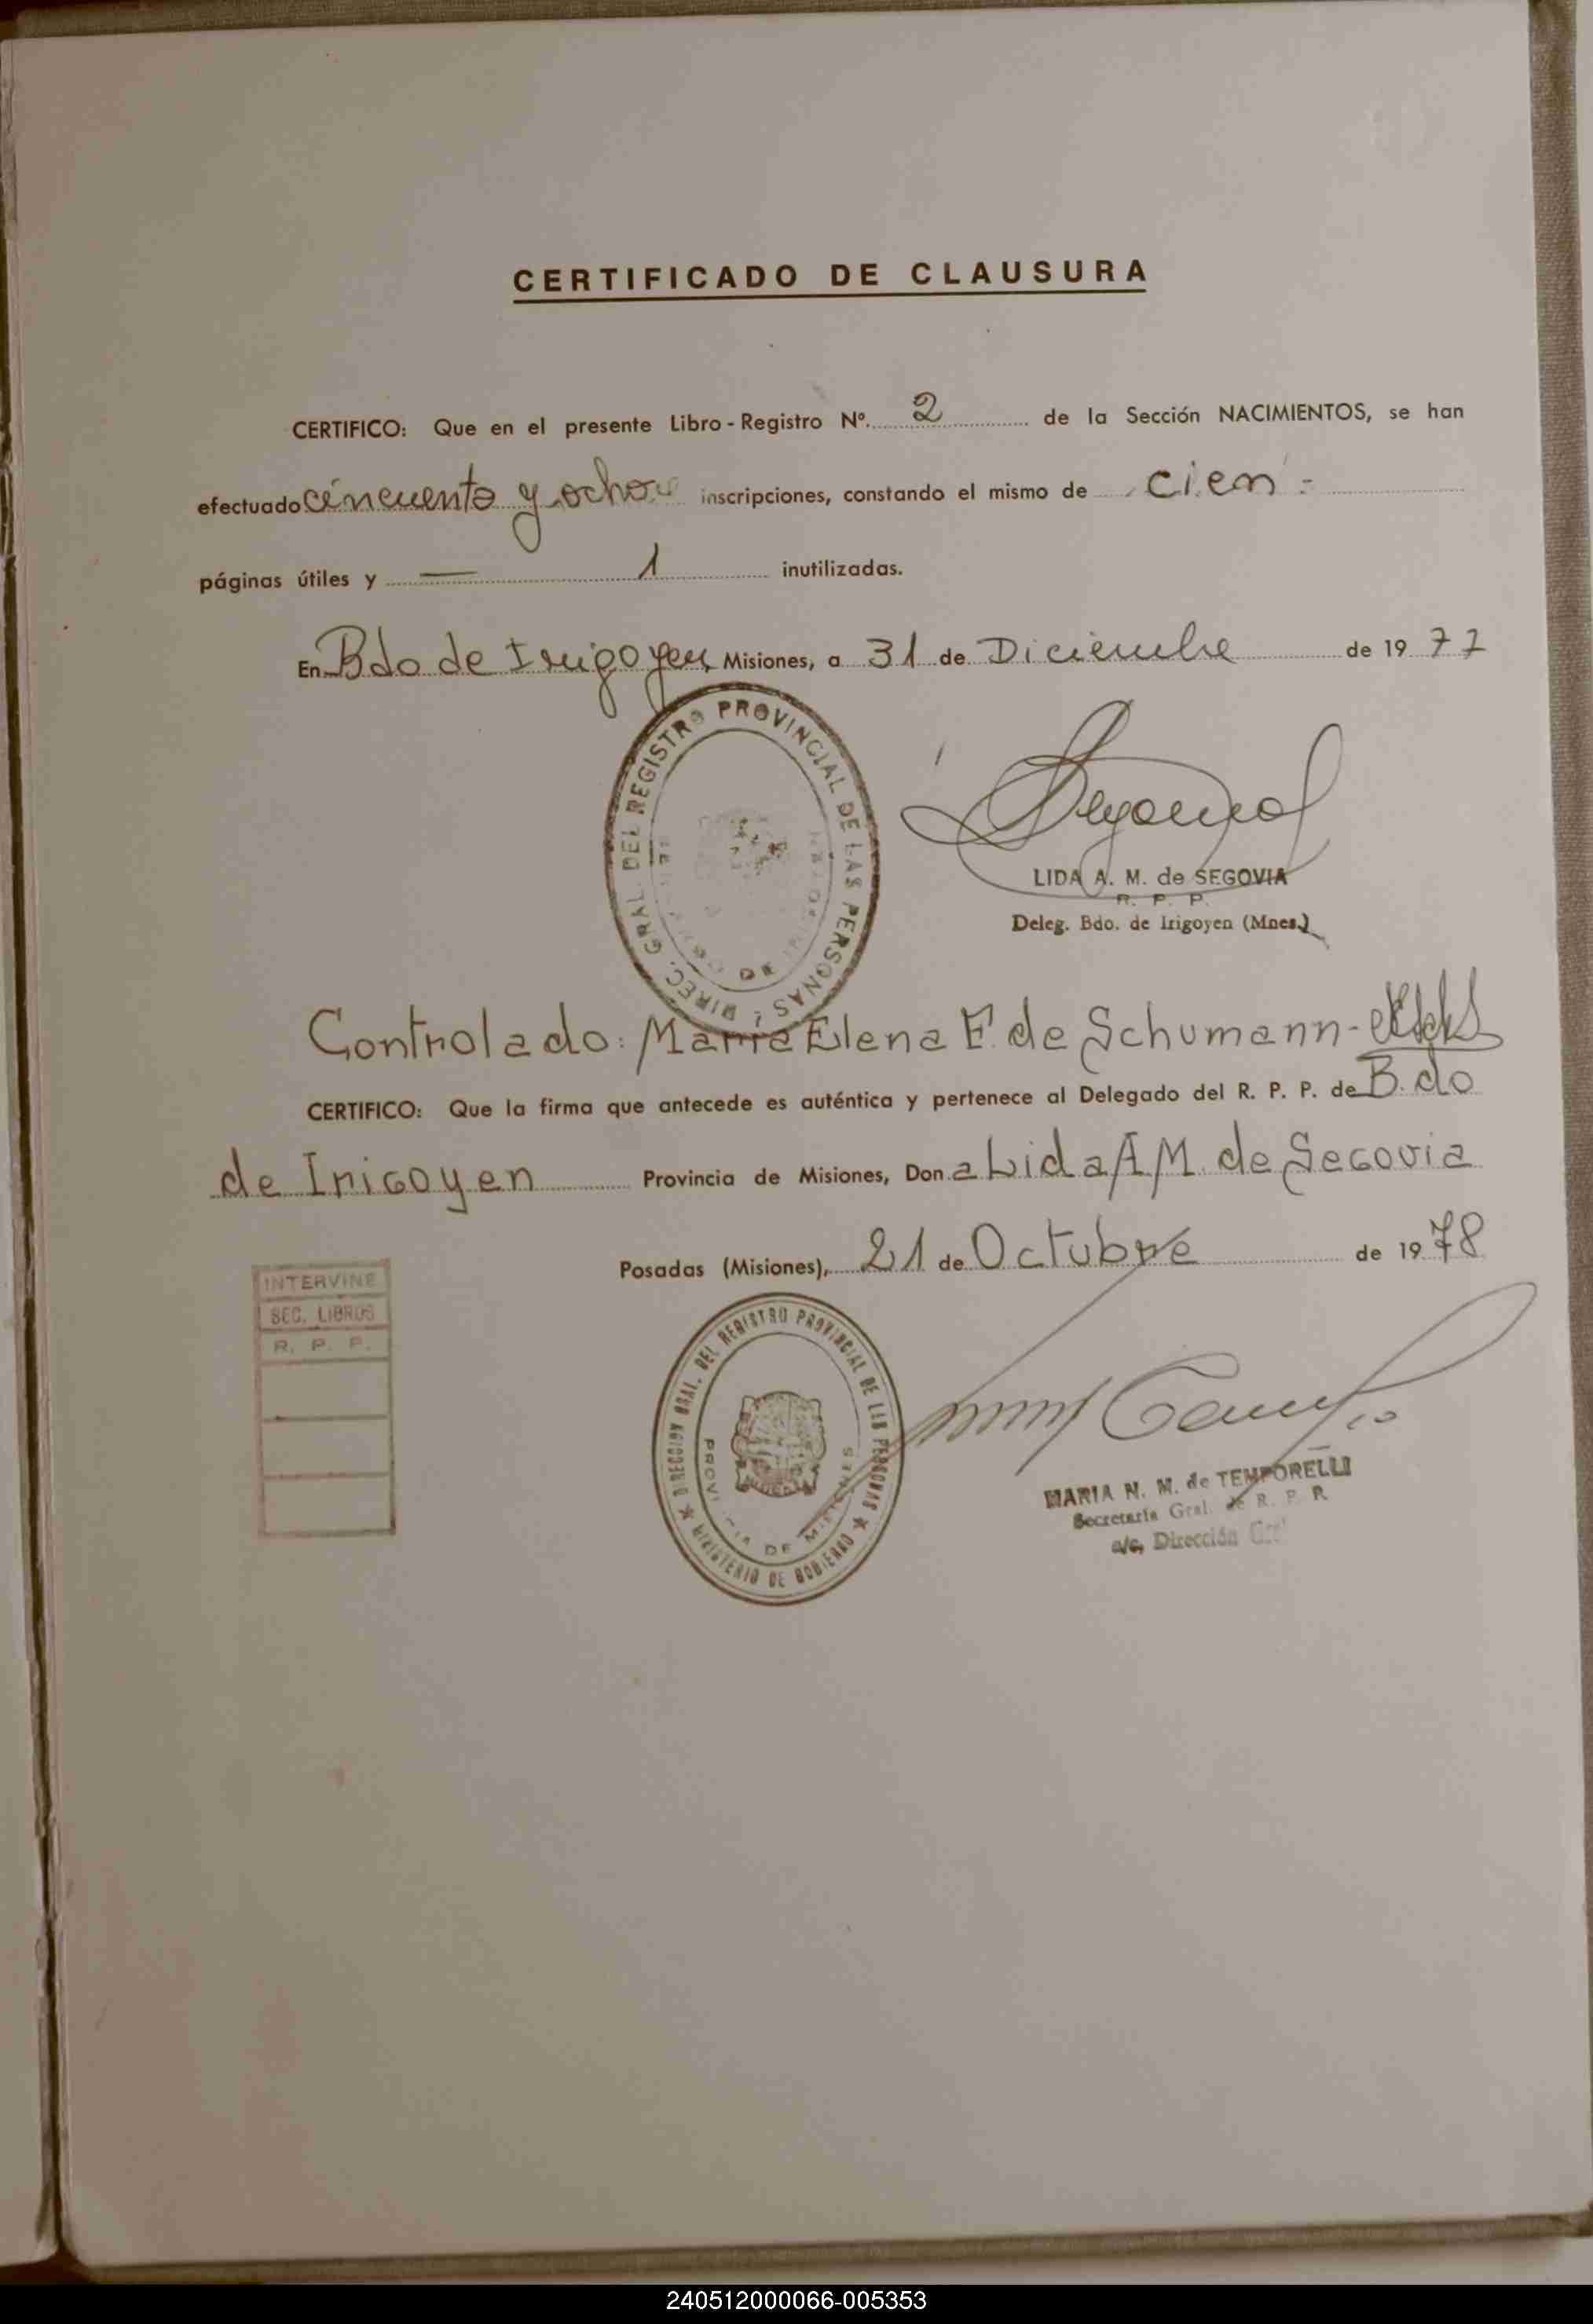 CERTIFICADO DE CLAUSURA
CERTIFICO: Que en el presente Libro - Registro Nº. 2 de la Sección NACIMIENTOS, se han
efectuado cincuenta y ocho inscripciones, constando el mismo de cien =
páginas útiles y — 1 inutilizadas.
En Bdo de Irigoyen, Misiones, a 31 de Diciembre de 19 77
DIREC. GRAL. DEL REGISTRO PROVINCIAL DE LAS PERSONAS
LIDA A. M. de SEGOVIA
R. P. P.
Deleg. Bdo. de Irigoyen (Mnes.)
Controlado: Maria Elena F. de Schumann -
CERTIFICO: Que la firma que antecede es auténtica y pertenece al Delegado del R. P. P. de B. do
de Irigoyen Provincia de Misiones, Don a Lida A M. de Segovia
Posadas (Misiones), 21 de Octubre de 19 78
INTERVINE
SEC. LIBROS
R. P. P.
DIRECCION GRAL. DEL REGISTRO PROVINCIAL DE LAS PERSONAS
MINISTERIO DE GOBIERNO
PROVINCIA DE MISIONES
MARIA N. M. de TEMPORELLI
Secretaria Gral. de R. P. P.
a/c, Dirección Gral
240512000066-005353